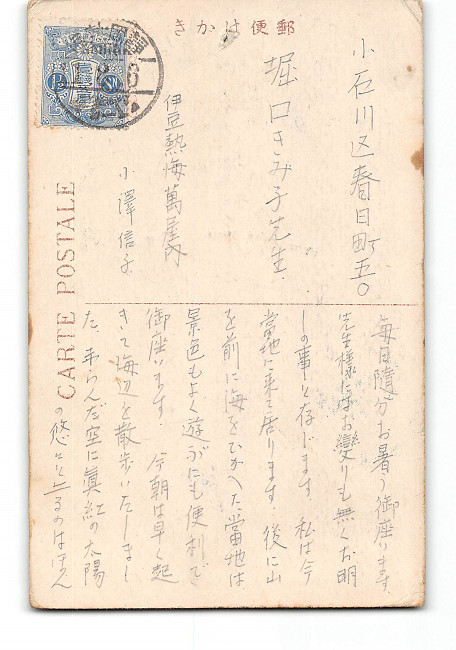 郵便はかき
CARTE POSTALE
小石川区春日町五〇
堀口きみ子先生
伊豆熱海萬屋内
小澤信子
毎日随分お暑う御座ります。
先生様にはお變りも無くお明
しの事と存じます。私は今
當地に来て居ります。後に山
を前に海をひかへた當地は
景色もよく遊ぶにも便利で
御座います。今朝は早く起
きて海辺を散歩いたしまし
た。
空に真紅の太陽
の悠々と
るのはほん